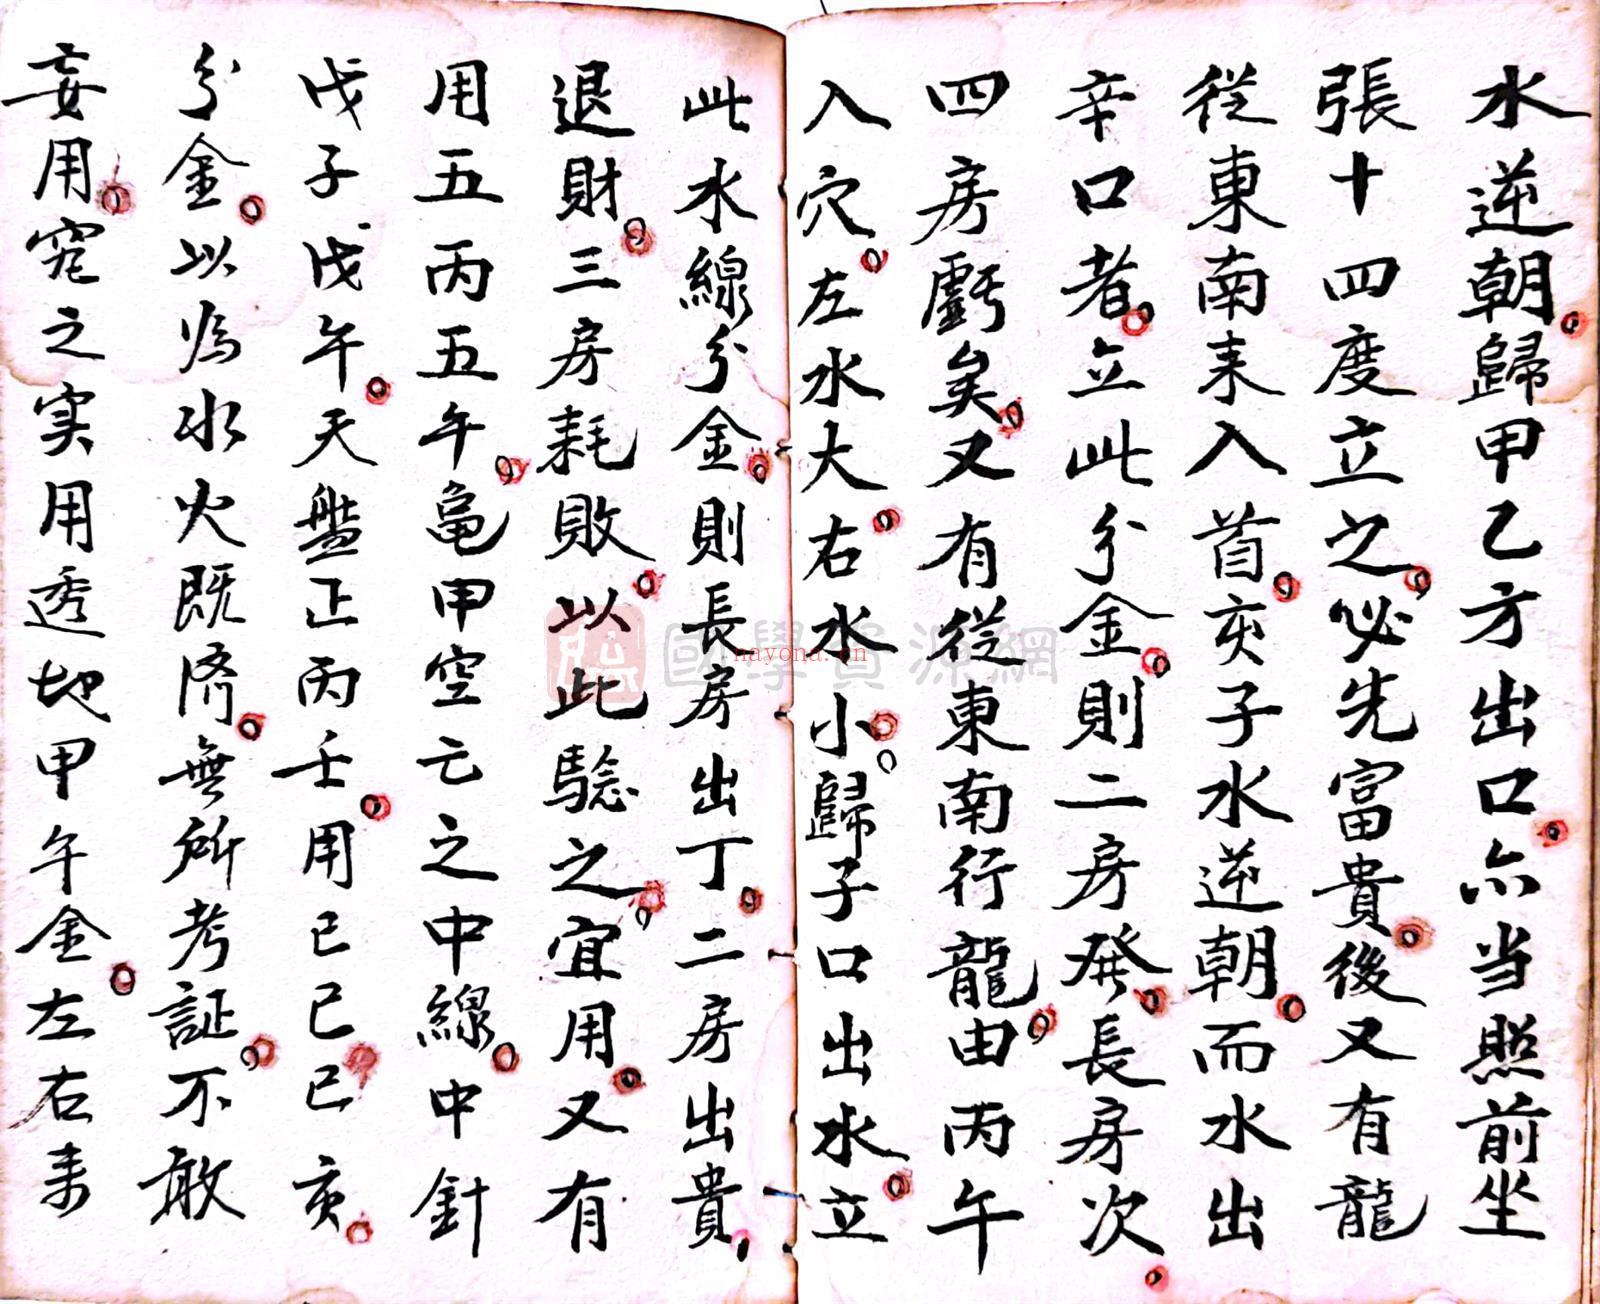 水逆朝歸甲乙方出口亦当照前坐
張十四度立之必先富貴後又有龍
從東南来入首亥子水逆朝而水出
辛口者立此分金則二房発長房次
四房虧矣又有從東南行龍由丙午
入穴左水大右水小歸子口出水立
此水線分金則長房出丁二房出貴
退財三房耗敗以此騐之宜用又有
用五丙五午龜甲空亡之中線中針
戊子戊午天盤正丙壬用己巳己亥
分金以為水火既濟無所考証不敢
妄用究之实用透地甲午金左右来
國學資源網
nayona.cn